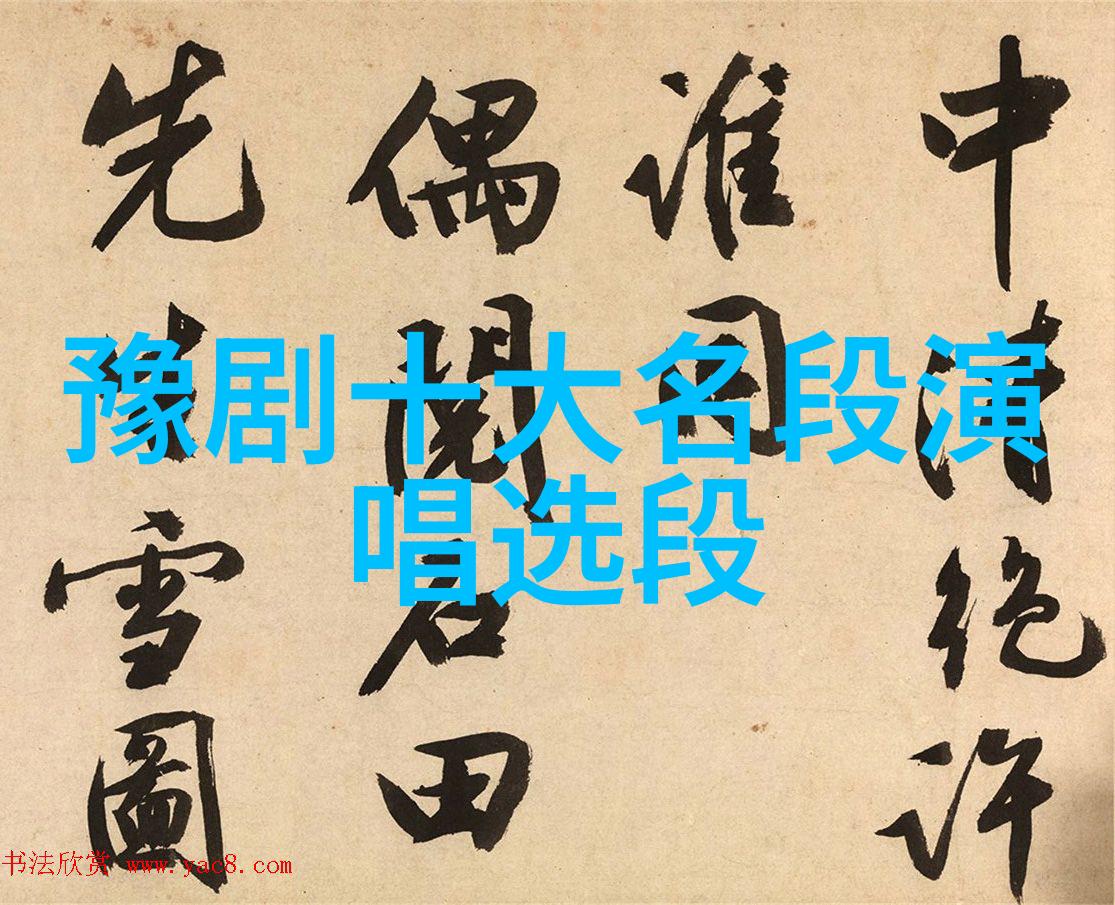 豫剧十大名段演
唱选段
中清絶許
誰同
偶閱石田
先生雪圖
书法欣赏 www.yac8.com